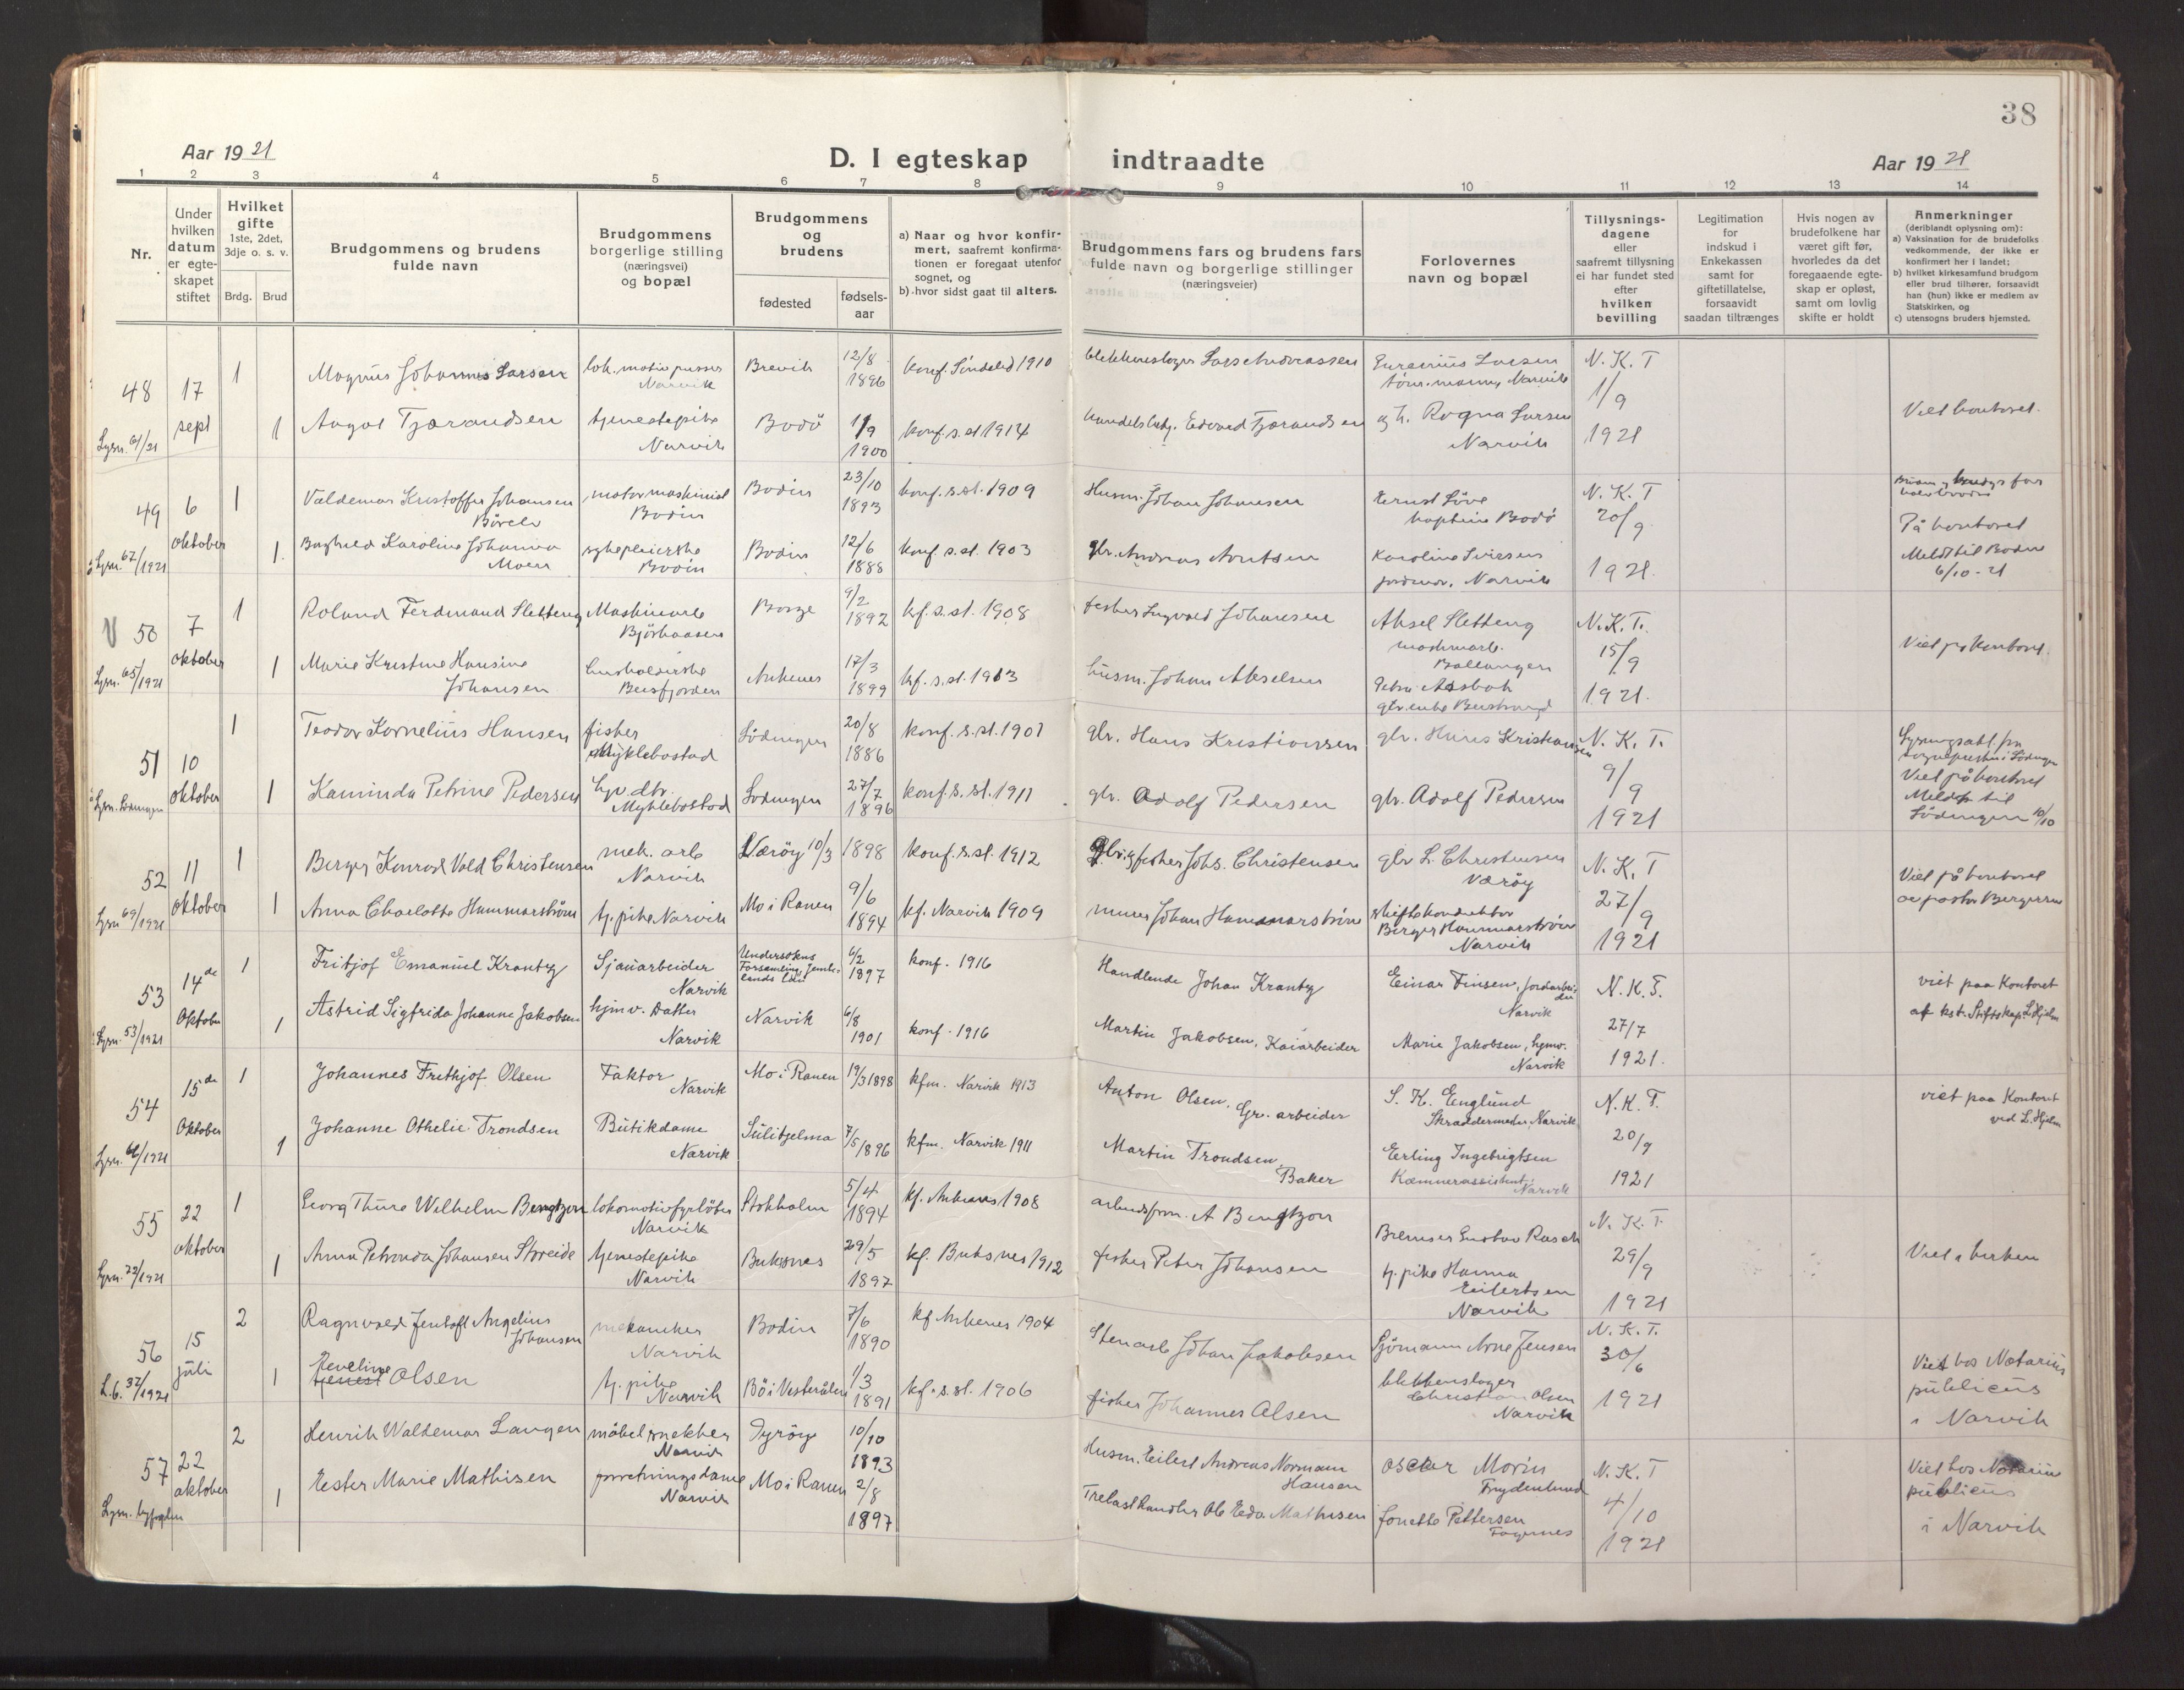 38
Aar 1921
D. I egteskap indtraadte
Aar 1921
1 2 3 4 5 6 7 8 9 10 11 12 13 14
Nr.
Under hvilken datum er egte-skapet stiftet
Hvilket gifte
1ste, 2det, 3dje o. s. v.
Brdg. Brud
Brudgommens og brudens fulde navn
Brudgommens borgerlige stilling (næringsvei) og bopæl
Brudgommens og brudens
fødested
fødsels-aar
a) Naar og hvor konfir-mert, saafremt konfirma-tionen er foregaat utenfor sognet, og
b) hvor sidst gaat til alters.
Brudgommens fars og brudens fars fulde navn og borgerlige stillinger (næringsveier)
Forlovernes navn og bopæl
Tillysnings-dagene eller saafremt tillysning ei har fundet sted efter hvilken bevilling
Legitimation for indskud i Enkekassen samt for giftetillatelse, forsaavidt saadan tiltrænges
Hvis nogen av brudefolkene har været gift før, hvorledes da det foregaaende egte-skap er opløst, samt om lovlig skifte er holdt
Anmerkninger (deriblandt oplysning om):
a) Vaksination for de brudefolks vedkommende, der ikke er konfirmert her i landet;
b) hvilket kirkesamfund brudgom eller brud tilhører, forsaavidt han (hun) ikke er medlem av Statskirken, og
c) utensogns bruders hjemsted.
48 17 sept 1 Magnus Johannes Larsen lok.motivpusser Narvik Brevik 12/8 1896 konf. Söndeled 1910 blikkenslager Lars Andreassen Eugenius Larsen Narvik N. K. T 1/9 1921
1 Aagot Tjærandsen tjenestepike Narvik Bodö 1/9 1900 konf. s. st 1914 Handelsbetj. Edvard Tjærandsen og h. Ragna Larsen Narvik Viet kontoret.
Lysn. 61/21
49 6 oktober 1 Valdemar Kristoffer Johansen motormaskinist Bodin Bodin 23/10 1893 konf. s. st. 1909 Husm. Johan Johansen Ernst Löve kaptein Bodö N. K. T 20/9 1921.
1 Karoline Johanna Moen sykepleierske Bodin Bodin 12/6 1888 konf s. st. 1903 gbr. Andreas Arntsen Karoline Iversen jordmor, Narvik På kontoret Meldt til Bodin 6/10-21
Lysn. 67/1921
50 7 oktober 1 Roland Ferdinand Sletteng Maskinarb Bjørkaasen Borge 9/2 1892 kf. s. st. 1908 fisker Ingvald Johansen Aksel Sletteng maskinarb. Ballangen N. K. T. 15/9 1921.
1 Marie Kristine Hansine Johansen husholderske Beisfjorden Ankenes 17/3 1899 kf. s. st. 1913 husm. Johan Akselsen Petra Aasbak Viet på kontoret.
Lysn. 65/1921
51 10 oktober 1 Teodor Kornelius Hansen fisker Myklebostad Lödingen 20/8 1886 konf. s. st. 1901 gbr. Hans Kristiansen gbr. Hans Kristiansen N. K. T. 9/9 1921
1 Kaminda Petrine Pedersen hjv. dtr. Myklebostad Lödingen 27/7 1896 konf. s. st. 1911 gbr. Adolf Pedersen gbr. Adolf Pedersen Lysningsatt. fra sognepresten i Lödingen Viet på kontoret Meldt til Lödingen 10/10
Lysn. Lödingen
52 11 oktober 1 Berger Konrad Vold Christensen mek. arb Narvik Væröy 10/3 1898 konf. s. st. 1912 Gbr. og fisker Johs. Christensen gbr L. Christensen Værøy N. K. T 27/9 1921
1 Anna Charlotte Hammarström tj. pike Narvik Mo i Ranen 9/6 1894 kf. Narvik 1909 murer Johan Hammarström skiftekonduktör Berger Hammarström Narvik Viet på kontoret av pastor Bergersen
Lysn 69/1921
53 14de Oktober 1 Fritjof Emanuel Krantz Sjauarbeider Narvik Undersökens Forsamling, Jemtlands Län 6/2 1897 konf. 1916 Handlende Johan Krantz Einar Finsen, Jordarbeider Narvik N. K. T. 27/7 1921.
1 Astrid Sigfrida Johanne Jakobsen hjmv. Datter Narvik Narvik 6/8 1901 konf. 1916 Martin Jakobsen, Kaiarbeider Marie Jakobsen, hjmv. Narvik viet paa Kontoret af kst. Stiftskap. L. Hjelm
Lysn. 53/1921
54 15de Oktober 1 Johannes Frithjof Olsen Faktor Narvik Mo i Ranen 19/3 1898 kfm. Narvik 1913 Anton Olsen, Gr. arbeider S. K. Englund Skræddermester, Narvik N. K. T. 20/9 1921
1 Johanne Othelie Trondsen Butikdame Narvik Sulitjelma 7/5 1896 kfm. Narvik 1911 Martin Trondsen Baker Erling Ingebrigtsen Kæmnerassistent, Narvik viet paa Kontoret ved L. Hjelm
55 22 oktober 1 Georg Thure Wilhelm Bengtzon lokomotivfyrböter Narvik Stokholm 5/4 1894 kf. Ankenes 1908 arbeidsform. A Bengtzon Bremser Gustav Rasch N. K. T. 29/9 1921
1 Anna Petronda Johansen Storeide tjenestepike Narvik Buksnes 29/5 1897 kf. Buksnes 1912 fisker Peter Johansen tj. pike Hanna Eilertsen Narvik Viet i kirken
Lysn. 72/1921
56 15 juli 2 Ragnvald Jentoft Angelius Johansen mekaniker Narvik Bodin 7/6 1890 kf Ankenes 1904 Stenarb Johan Jakobsen Sjömann Arne Jensen N. K. T. 30/6 1921
1 Eveline Olsen tj. pike Narvik Bö i Vesterålen 1/3 1891 kf. s. st. 1906 fisker Johannes Olsen blikkenslager Christian Olsen Narvik Viet hos Notarius publicus i Narvik
L. 6. 37/1921
57 22 oktober 2 Henrik Waldemar Langen möbelsnekker Narvik Dyröy 10/10 1893 Husm. Eilert Andreas Normann Hansen Oscar Morin Frydenlund N. K. T 4/10 1921
1 Ester Marie Mathisen forretningsdame Narvik Mo i Ranen 2/8 1897 Trelasthandler Ole Edv. Mathisen Jonette Pettersen Fagernes Viet hos Notarius publicus i Narvik